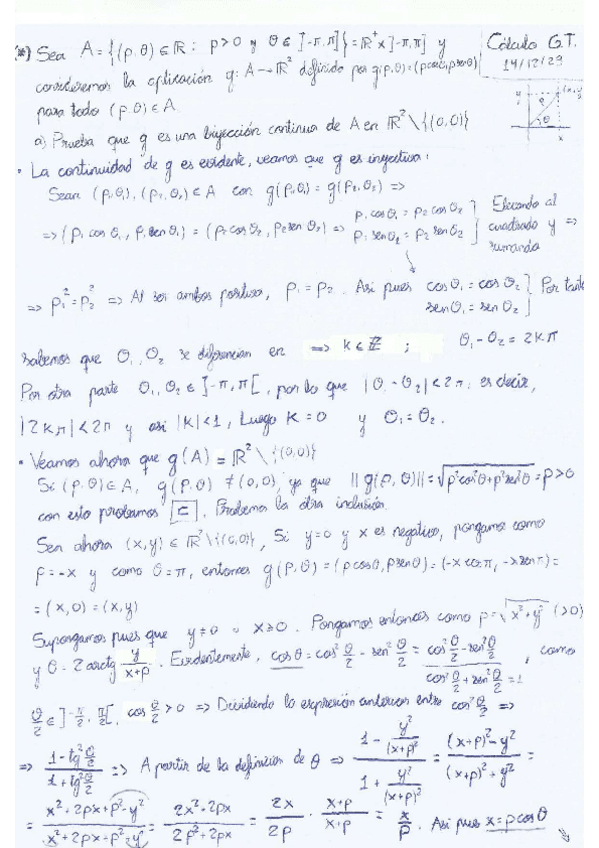 (*) Sea A = {(ρ,θ) ∈ ℝ : ρ>0 y θ ∈ ]-π,π]} = ℝ⁺×]-π,π] y
Cálculo G.T.
14/12/23
consideremos la aplicación g: A → ℝ² definida por g(ρ,θ)=(ρcosθ,ρsenθ)
para todo (ρ,θ) ∈ A.
a) Prueba que g es una biyección continua de A en ℝ² \ {(0,0)}
• La continuidad de g es evidente, veamos que g es inyectiva:
Sean (ρ₁,θ₁), (ρ₂,θ₂) ∈ A con g(ρ₁,θ₁) = g(ρ₂,θ₂) =>
=> (ρ₁ cos θ₁, ρ₁ sen θ₁) = (ρ₂ cos θ₂, ρ₂ sen θ₂) => ρ₁ cos θ₁ = ρ₂ cos θ₂ ρ₁ sen θ₁ = ρ₂ sen θ₂ ] Elevando al cuadrado y sumando =>
=> ρ₁² = ρ₂² => Al ser ambos positivos, ρ₁ = ρ₂. Así pues cos θ₁ = cos θ₂ sen θ₁ = sen θ₂ ] Por tanto
sabemos que θ₁, θ₂ se diferencian en => k ∈ ℤ ; θ₁ - θ₂ = 2kπ
Por otra parte θ₁, θ₂ ∈ ]-π,π[, por lo que |θ₁ - θ₂| < 2π; es decir,
|2kπ| < 2π y así |k| < 1, Luego k = 0 y θ₁ = θ₂.
• Veamos ahora que g(A) = ℝ² \ {(0,0)}
Si (ρ,θ) ∈ A, g(ρ,θ) ≠ (0,0), ya que ||g(ρ,θ)|| = √ρ²cos²θ+ρ²sen²θ = ρ > 0
con esto probamos ⊂. Probemos la otra inclusión.
Sea ahora (x,y) ∈ ℝ² \ {(0,0)}, Si y=0 y x es negativo, pongamos como
ρ = -x y como θ = π, entonces g(ρ,θ) = (ρcosθ, ρsenθ) = (-x cos π, -x sen π) =
= (x,0) = (x,y)
Supongamos pues que y ≠ 0 o x ≥ 0. Pongamos entonces como ρ = √x²+y² (>0)
y θ = 2 arctg y/(x+ρ). Evidentemente, cos θ = cos² θ/2 - sen² θ/2 = (cos² θ/2 - sen² θ/2)/(cos² θ/2 + sen² θ/2 = 1), como
θ/2 ∈ ]-π/2, π/2[, cos θ/2 > 0 => Dividiendo la expresión anterior entre cos² θ/2 =>
=> (1 - tg² θ/2)/(1 + tg² θ/2) => A partir de la definición de θ => (1 - y²/(x+ρ)²)/(1 + y²/(x+ρ)²) = ((x+ρ)² - y²)/((x+ρ)² + y²) =
= (x² + 2ρx + ρ² - y²)/(x² + 2ρx + ρ² + y²) = (2x² + 2ρx)/(2ρ² + 2ρx) = 2x/2ρ · (x+ρ)/(x+ρ) = x/ρ. Así pues x = ρ cos θ